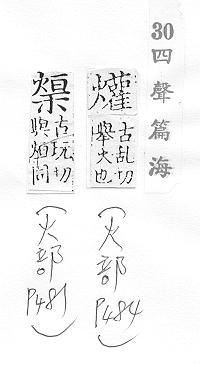 30
四聲篇海
爟
古乱切
舉火也
(火部
P484)
古玩切
同
(火部
P481)